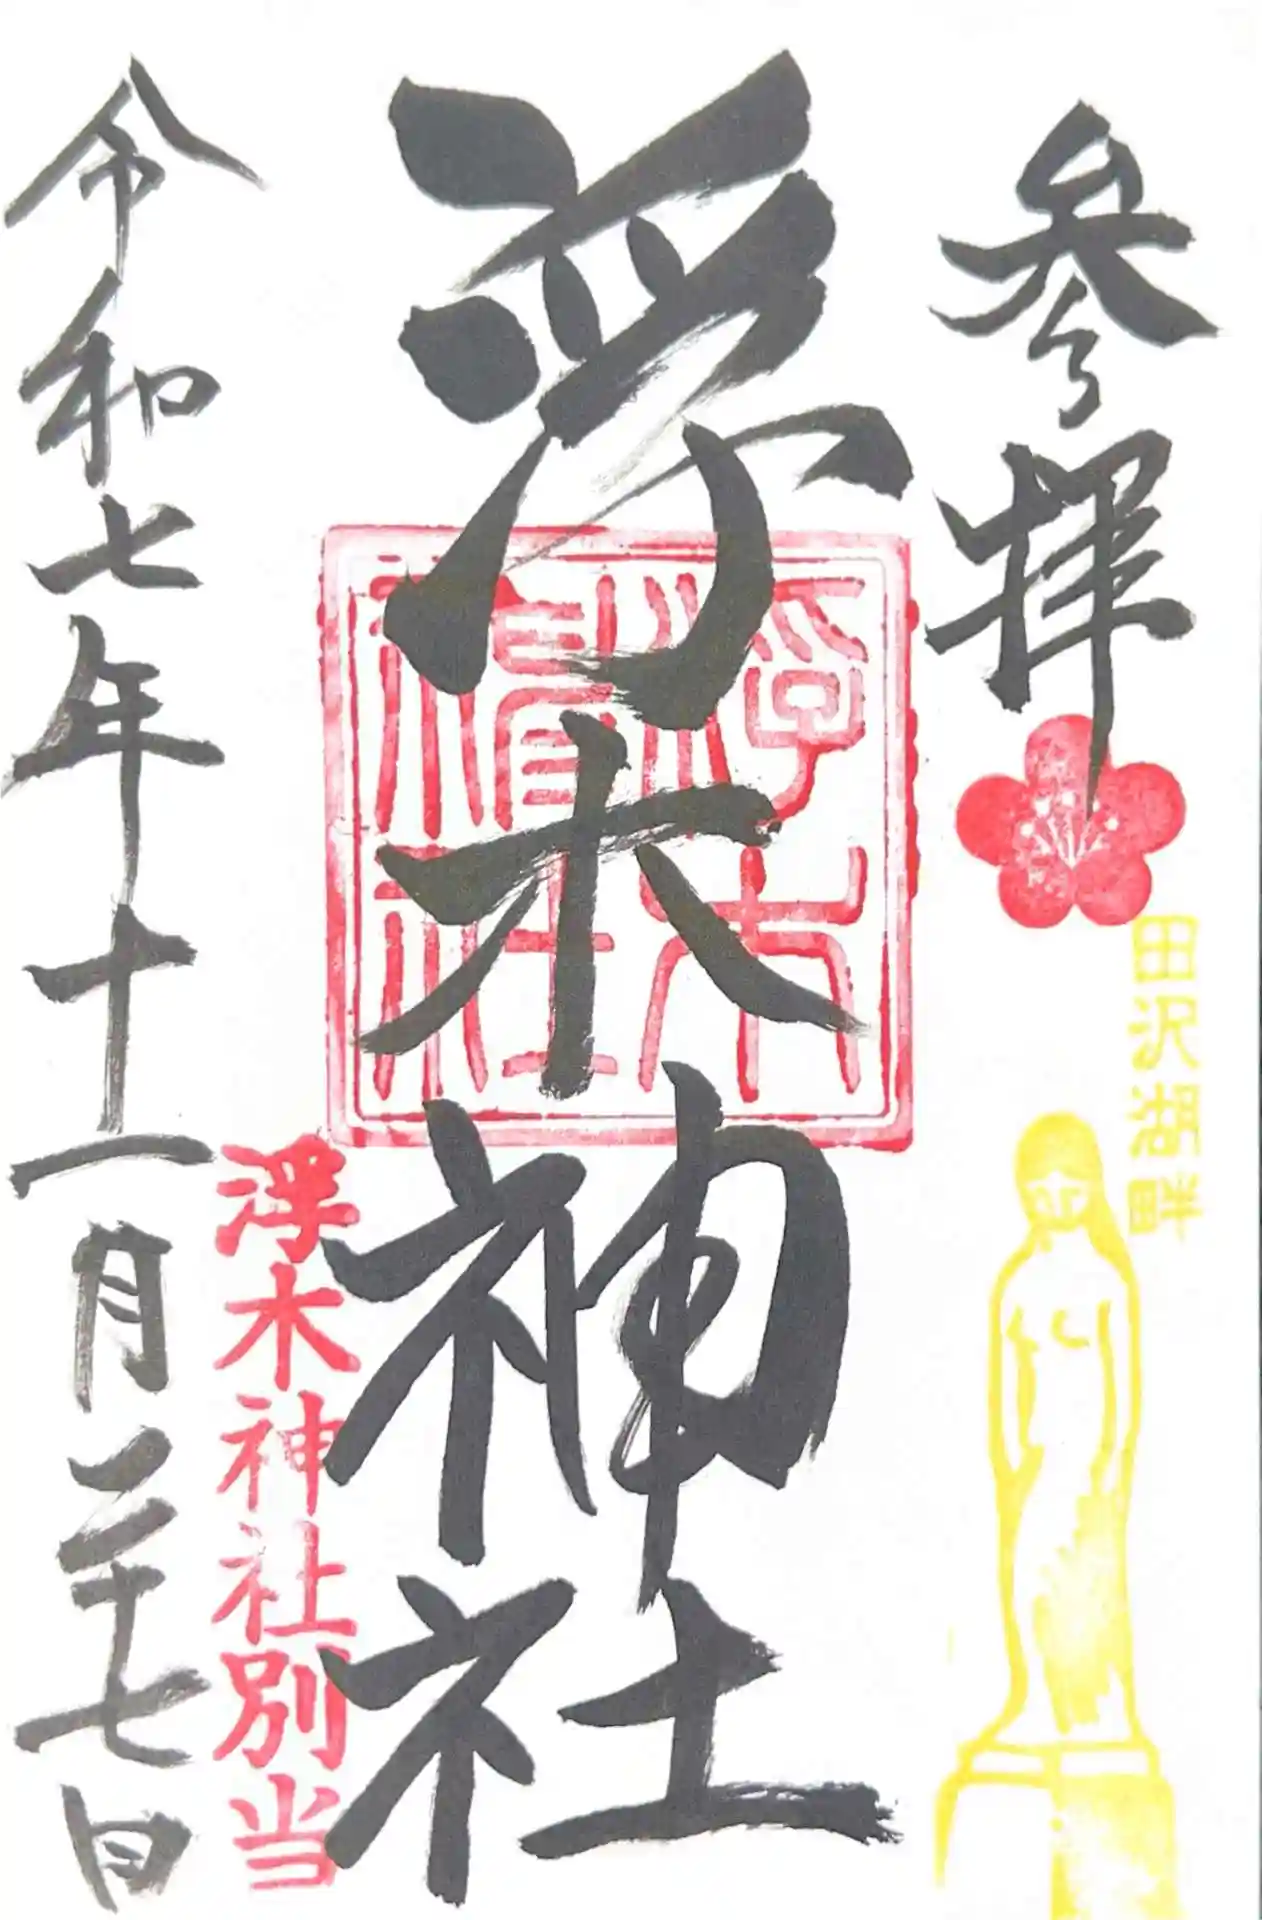 参拝
田沢湖畔
浮木神社
浮木神社
浮木神社別当
令和七年十一月二十七日